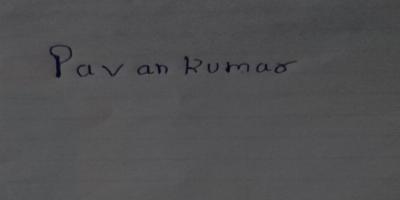 Pavan kumar